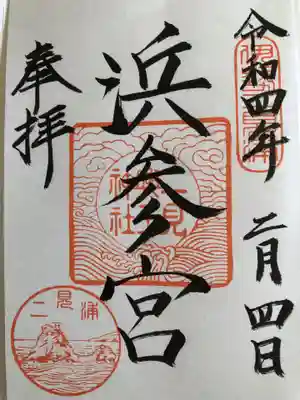 令和四年 二月四日
浜参宮
奉拝
神社
二見浦